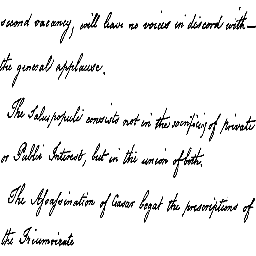 second vacancy, will leave no voices in discord with—
the general applause.
The Salus populi consists not in the sacrificing of private
or Public Interest, but in the union of both.
The Assassination of Cæsar begat the proscriptions of
the Triumvirate